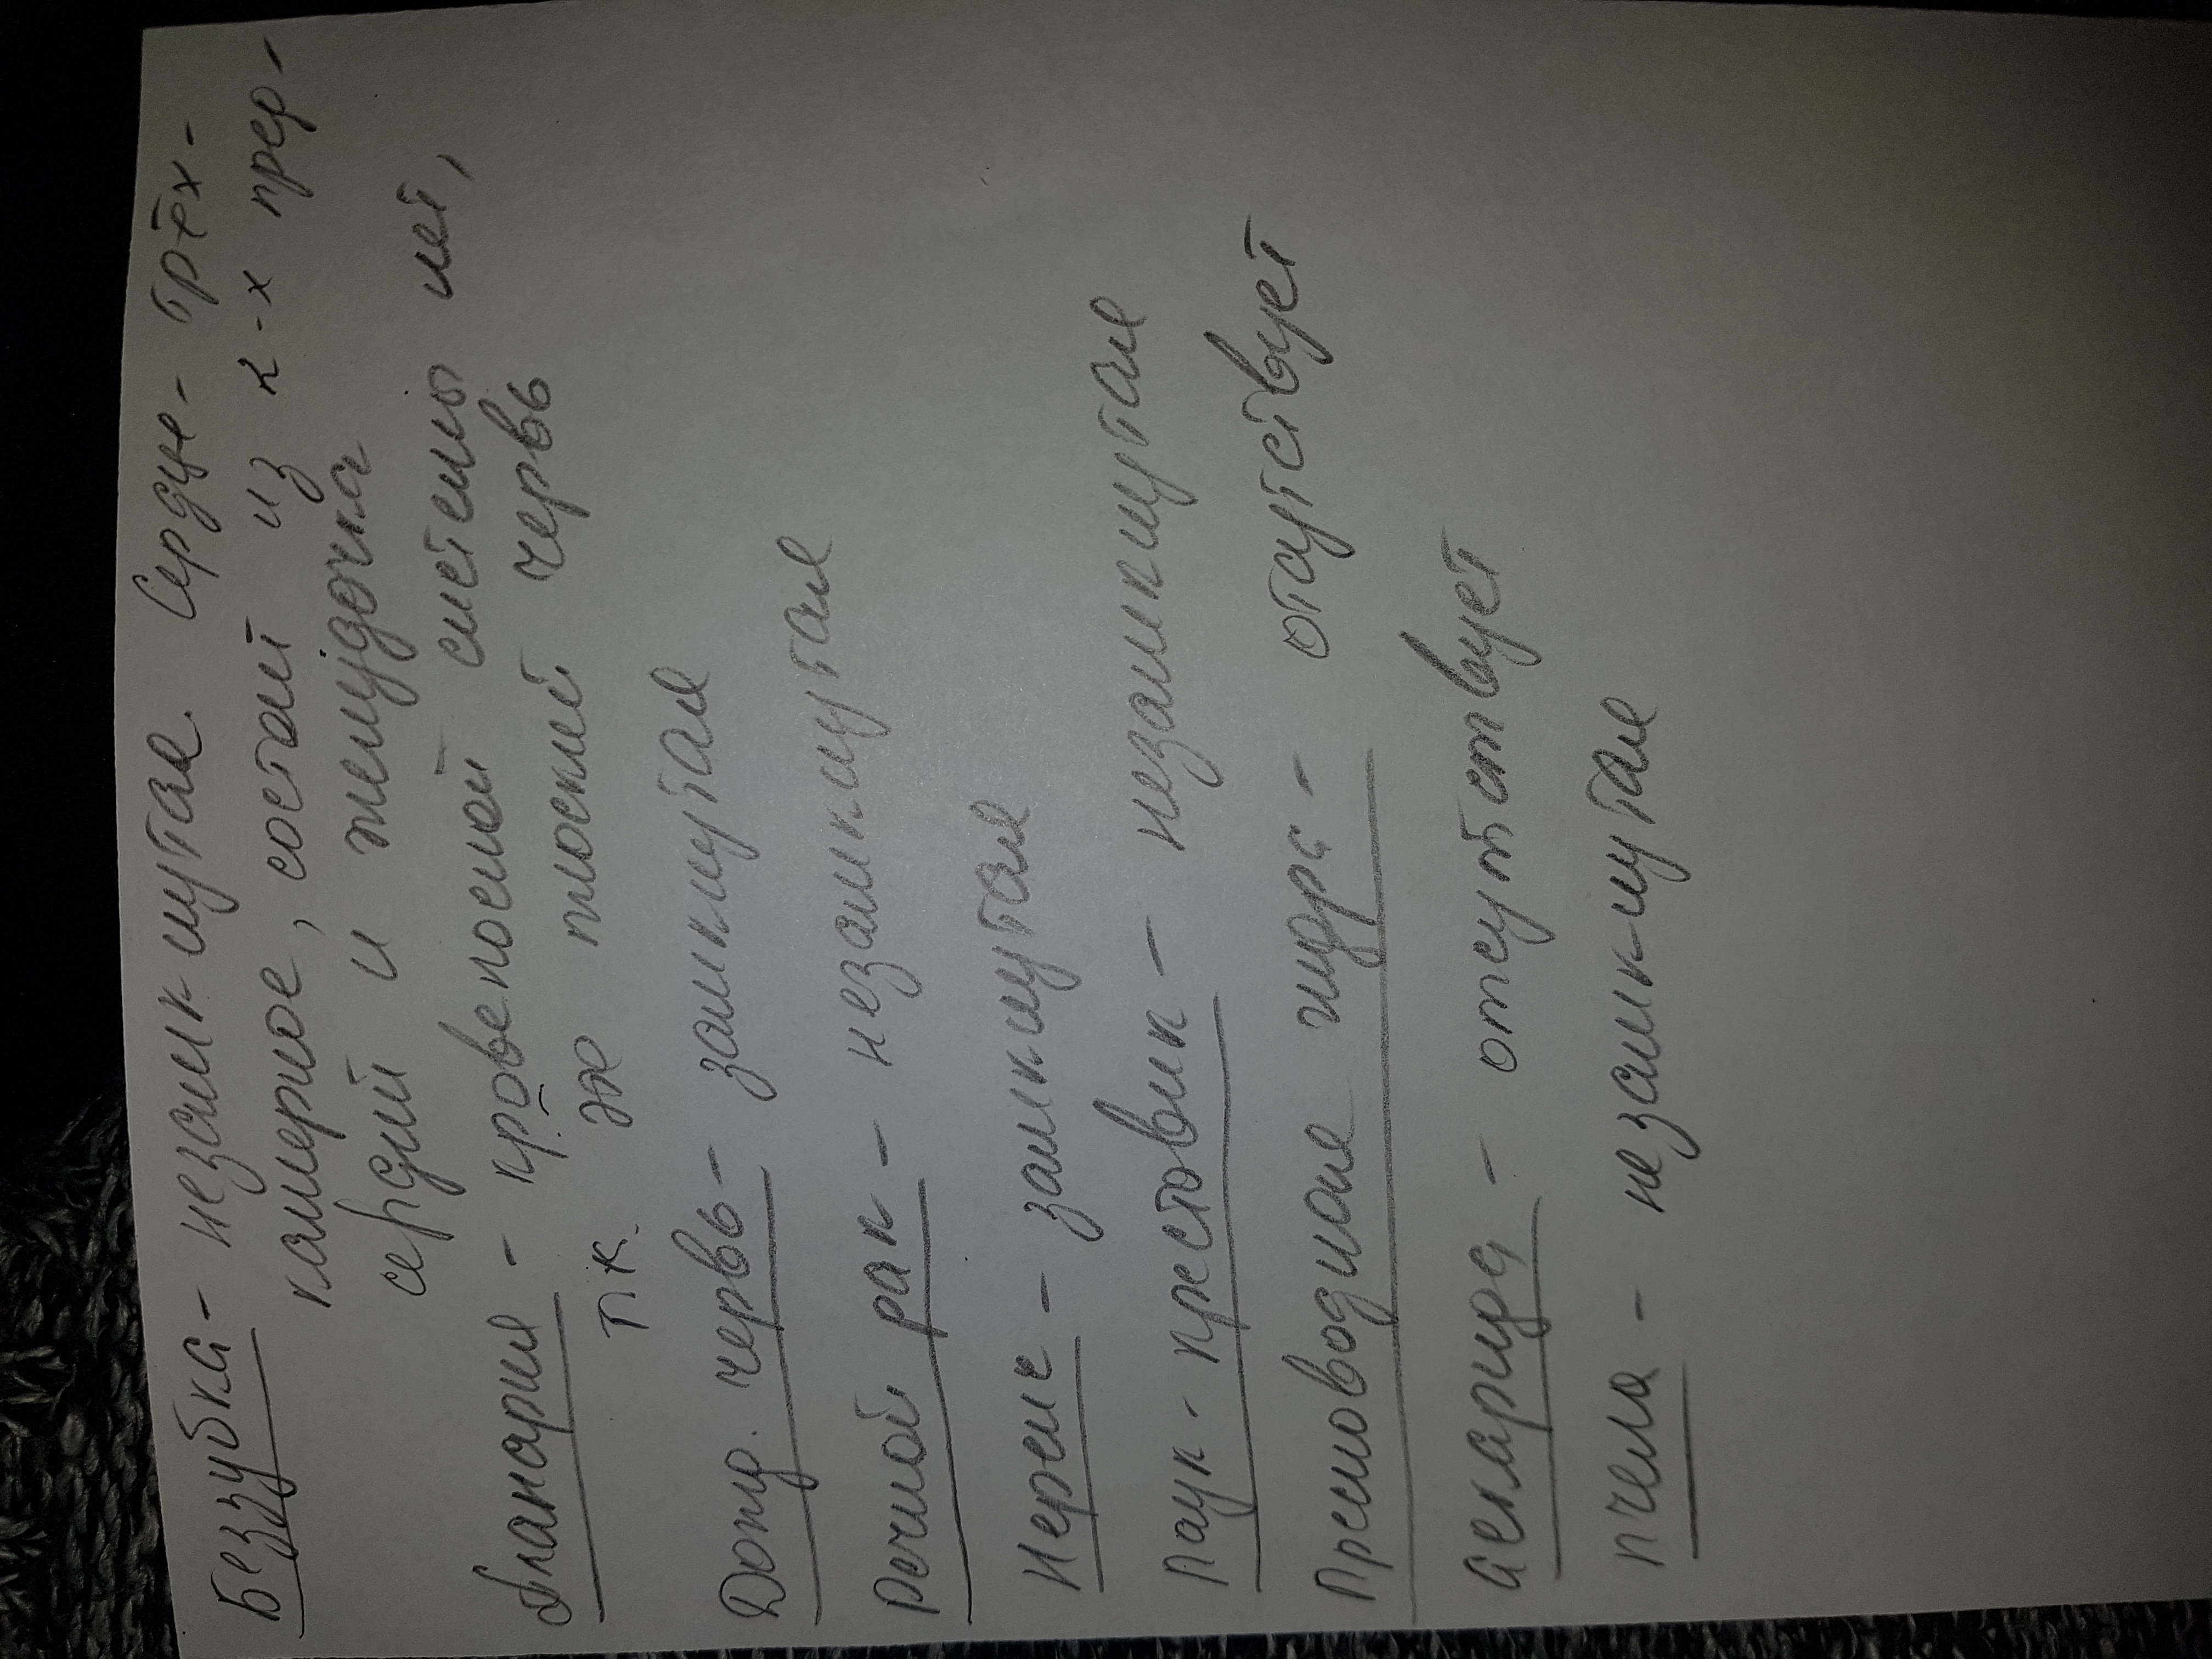 Беззубка - незамкнутая. Сердце - трёх-
камерное, состоит из 2-х пред-
сердий и желудочка
Планария - кровеносной системы нет,
т.к. это плоский червь
Дожд. червь - замкнутая
Речной рак - незамкнутая
Нереис - замкнутая
Паук-крестовик - незамкнутая
Пресноводная гидра - отсутствует
Аскарида - отсутствует
пчела - незамкнутая